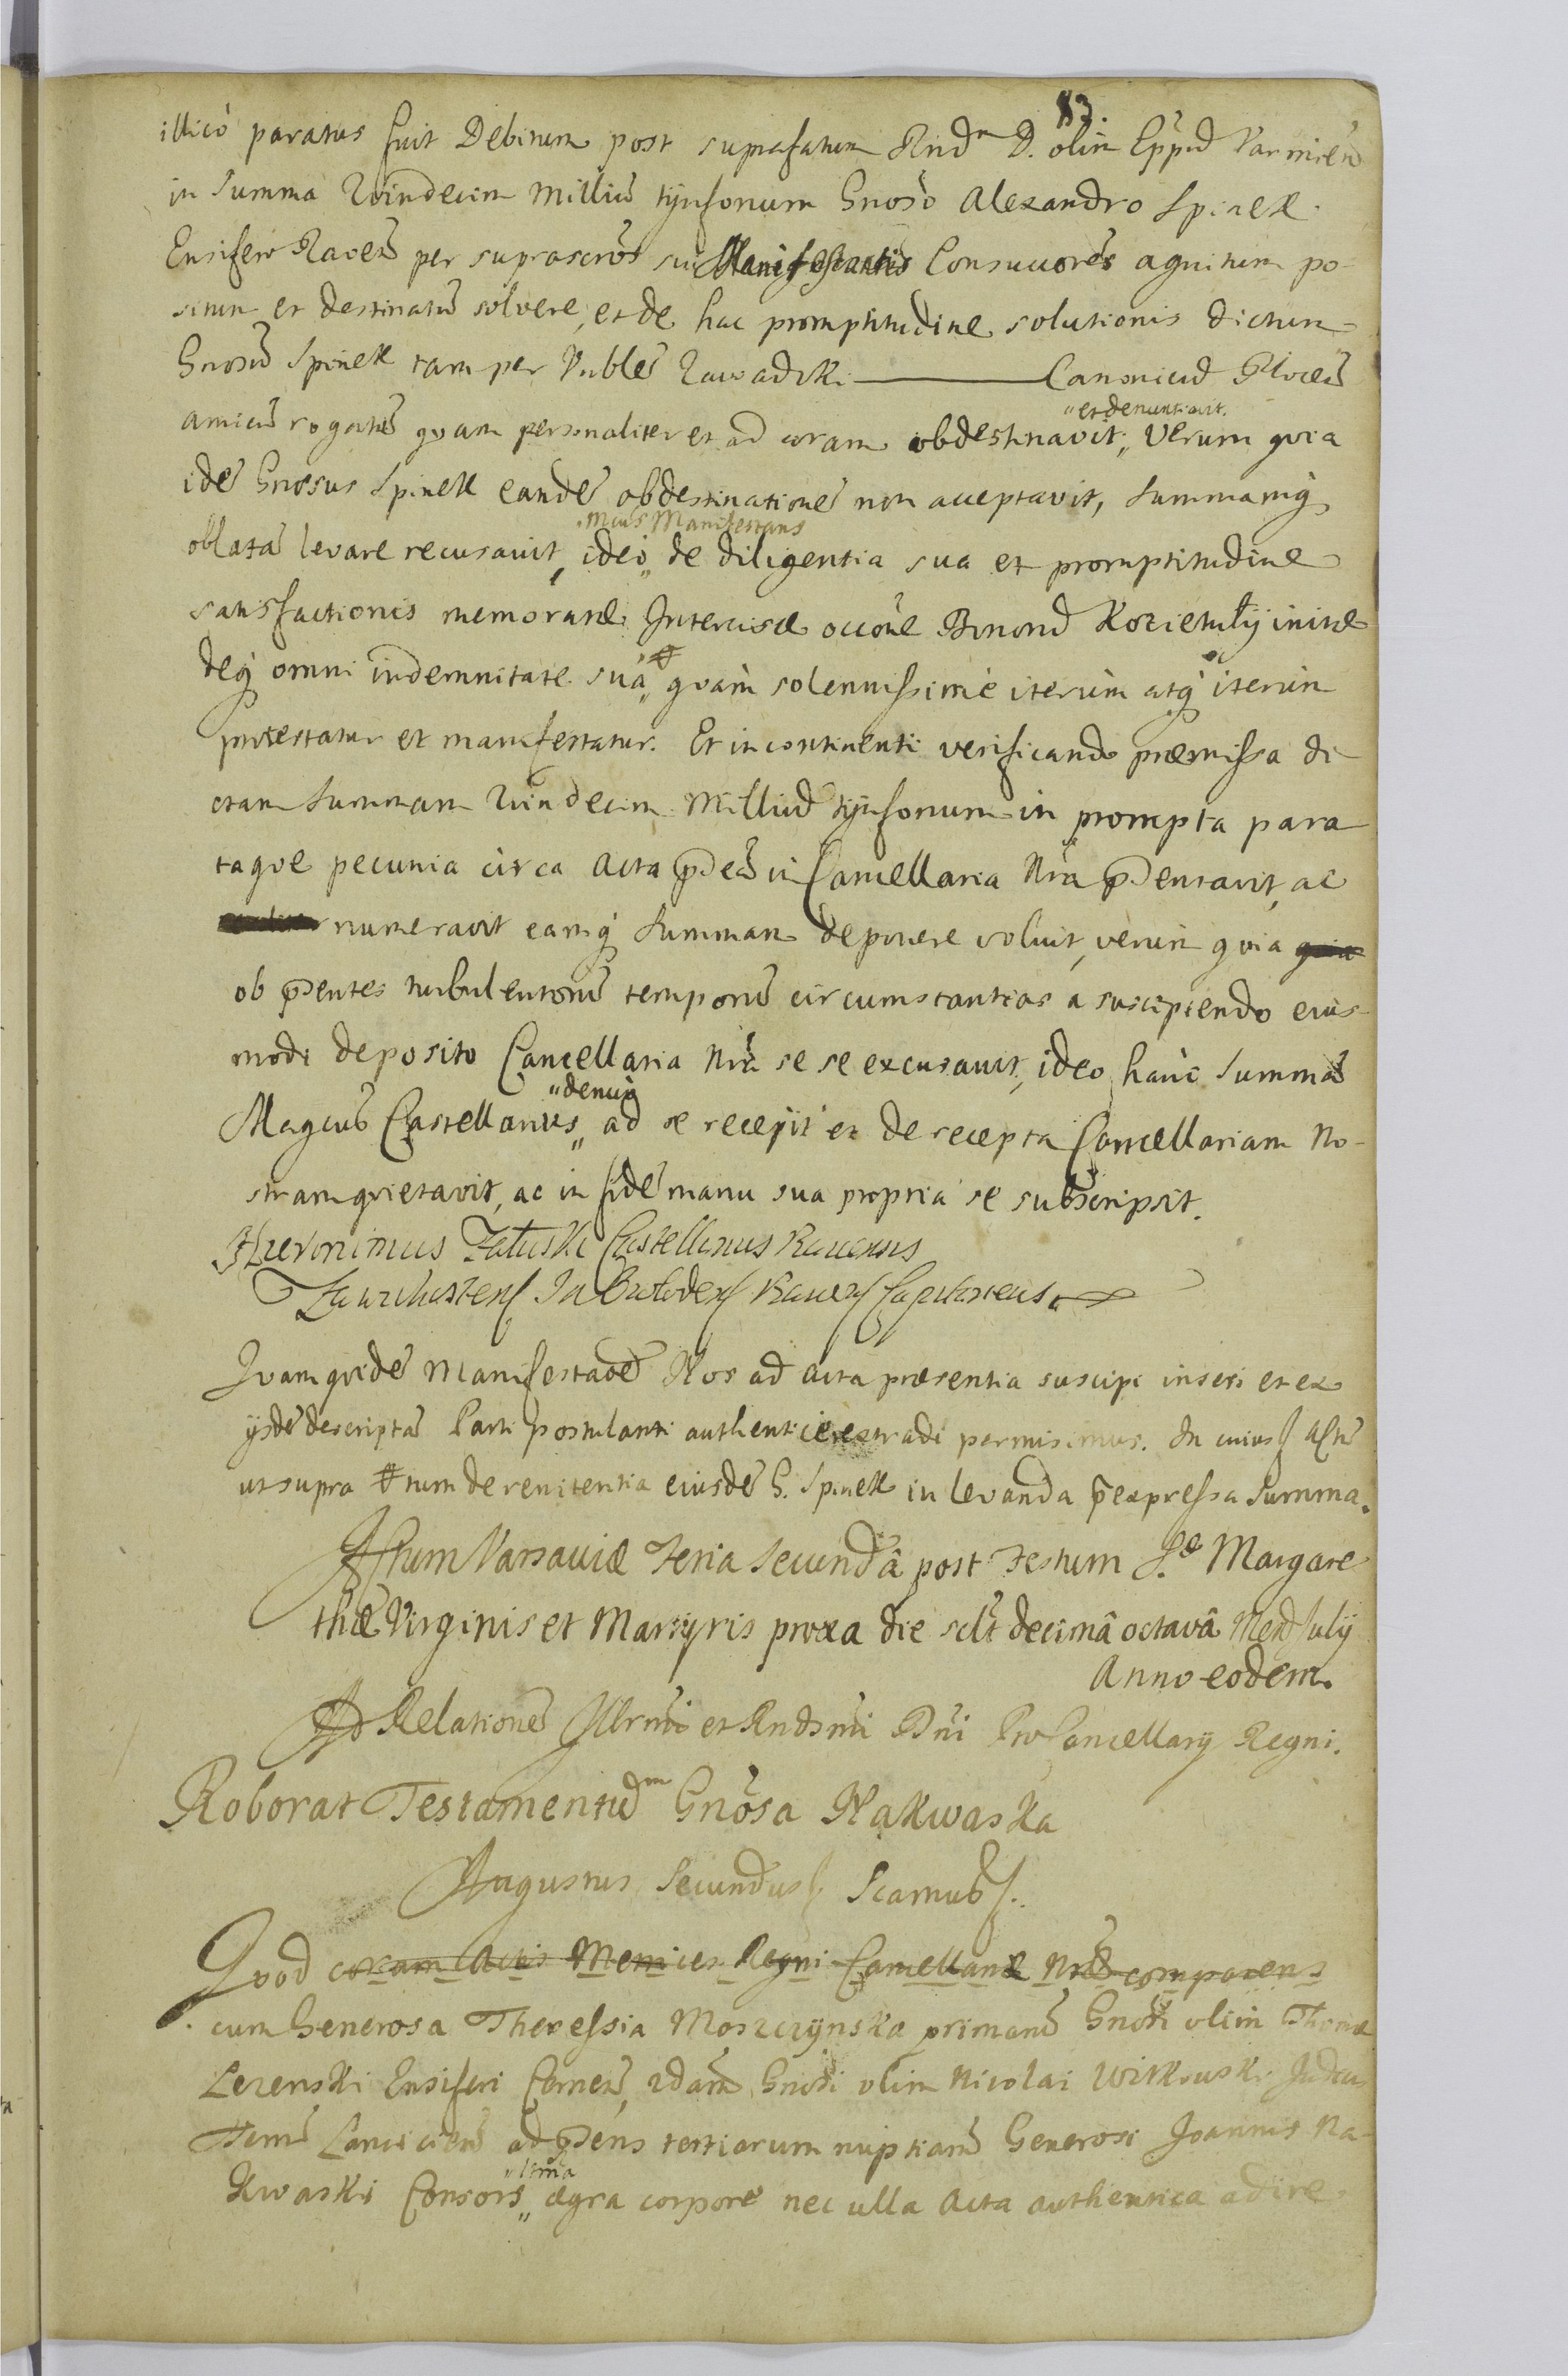 83.
illicò paratus fuit Debitum post suprafatum Rndm D. olim Eppũ Varmień
in Summa Quindecim Milliũ tynfonum Gnoso Alexandro Spinek
Ensifero Raveñ per suprascrõs sui Manifestantis Consuccores agnitum po-
situm et destinatũ solvere, et de hac promptitudine solutionis dictum
Gnosũ Spinek tam per Vnbleẽ Zawadzki ——— Canonicũ Ploceñ
amicũ rogatũ quam personaliter et ad coram obdestinavit „ Verum quia
„et denuntiavit.
idẽ Gnosus Spinek eandẽ obdestinationẽ non acceptavit, Summamq̃
oblatã levare recusavit, ideo „ de diligentia sua et promptitudine
„Mcus Manifestans
satisfactionis memoratæ Intercisæ occõne Bonorũ Kozietuły initæ
deq̃ omni indemnitate suâ „ # quàm solennissimè iterùm atq̃ iterùm
protestatur et manifestatur. Et incontinenti verificando præmissa di-
ctam Summam Quindecim Milliũ tynfonum in prompta para
taque pecunia circa Acta p̃ñ in Cancellaria Nrã p̃ntavit, ac
numeravit eamq̃ Summam deponere voluit, verùm quia quia
ob p̃ntes turbulentorũ temporũ circumstantias a suscipiendo eius-
modi deposito Cancellaria Nrã se se excusavit, ideo hanc Summã
Magcus Castellanus „ ad se recepit et de recepta Cancellariam No-
„denuò
stram quietavit, ac in fidẽ manu sua propria se subscripsit.
Hieronimus Załuski Castellanus Rauensis
Inowłodens Rauens Capitaneus
Quam quidẽ Manifestaõẽ Nos ad Acta præsentia suscipi inseri et ex
ijsdẽ descriptã Parti postulanti authenticè extradi permisimus. In cuius Actũ
ut supra # tum de renitentia eiusdẽ G. Spinek in levanda p̃expressa Summa.
Actum Varsaviæ Feria Secundâ post Festum S.æ Margare
thæ Virginis et Martyris proxa die sclt decimâ octavâ Mens Julij
Anno eodem.
Ad Relationẽ Illrmi et Rndsmi Dni ProCancellarij Regni.
Roborat Testamentũm Gnosa Nakwaska
Augustus Secundus Scamus.
Quod coram Actis Metrices Regni Cancellariæ Nræ comparens
cum Generosa Theressia Moszczynska primarũ Gnosi olim Thomæ
Lezenski Ensiferi 2darũ Gnosi olim Nicolai Witkowski Judicis
Terris Lancicień ad p̃ns tertiarum nuptiarũ Generosi Joannis Na-
kwaski Consors „ ægra corpore nec ulla Acta authentica adire
„ltma